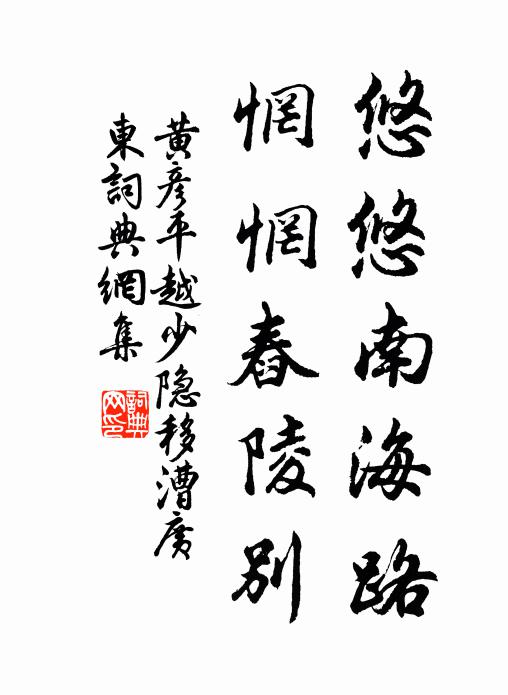 悠悠南海路
惘惘舂陵别
黄彦平越少隐移漕广
東詞典網集
詞典网印